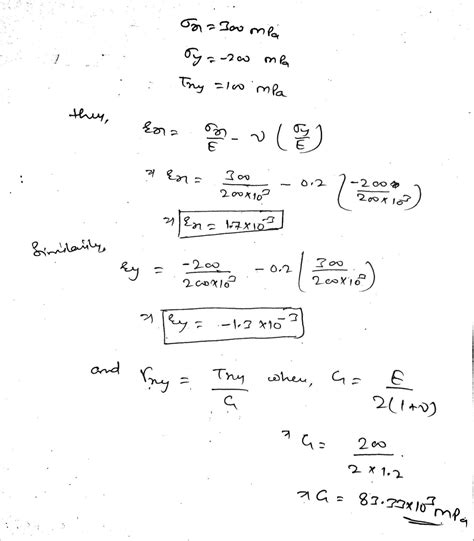 σx = 300 mPa
σy = -200 mPa
τxy = 100 mPa
thus,
εx = σx/E - ν (σy/E)
⇒ εx = 300/200×10³ - 0.2 (-200/200×10³)
⇒ εx = 1.7×10⁻³
Similarly,
εy = -200/200×10³ - 0.2 (300/200×10³)
⇒ εy = -1.3×10⁻³
and γxy = τxy/G when, G = E/2(1+ν)
⇒ G = 200/2×1.2
⇒ G = 83.33×10³ mPa